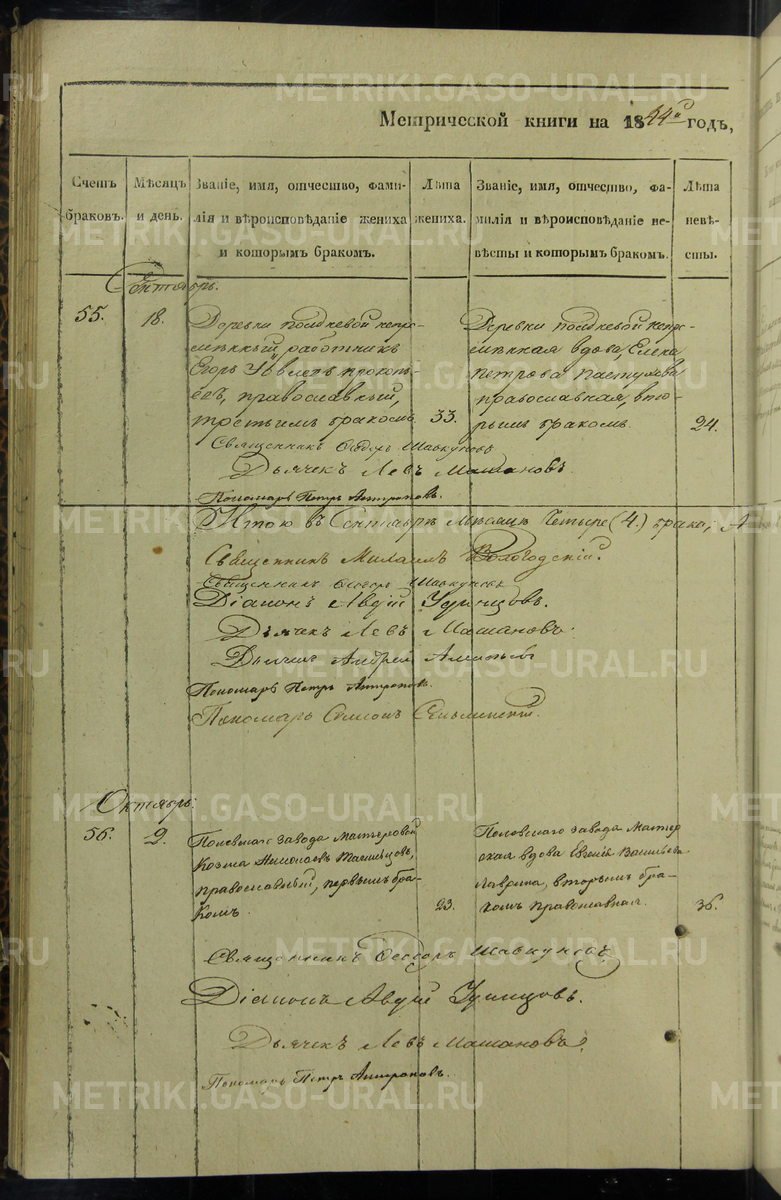 Метрической книги на 1844й годъ,
Счетъ браковъ.
Мѣсяцъ и день.
Званіе, имя, отчество, фами-
лія и вѣроисповѣданіе жениха
и которымъ бракомъ.
Лѣта
жениха.
Званіе, имя, отчество, фа-
милія и вѣроисповѣданіе не-
вѣсты и которымъ бракомъ.
Лѣта
невѣ-
сты.
55.
18.
Деревни Полдневой непре-
мѣнный работникъ
Егоръ
православный,
третьимъ бракомъ
33.
Деревни Полдневой непре-
мѣнная вдова, Елена
Петрова Пастухова
православная, вто-
рымъ бракомъ.
24.
Священникъ Ѳеодоръ Шавкуновъ
Дьячекъ Левъ Машановъ
Пономарь Петръ Антроповъ.
Итого въ Сентябрѣ мѣсяцѣ Четыре (4.) брака; А
Священникъ Михаилъ Вологодскій.
Священникъ Ѳеодоръ Шавкуновъ
Діаконъ Авдій Удинцовъ.
Дьячекъ Левъ Машановъ.
Дьячекъ Андрей
Пономарь Петръ Антроповъ.
Пономарь Симеонъ
Октябрь.
56.
2.
Полевскаго завода Мастеровой
Козма
православный, первымъ бра-
комъ.
23.
Полевскаго завода Мастер
ская вдова Евгенія Васильева
Лаврина, вторымъ бра-
комъ православная.
36.
Священникъ Ѳеодоръ Шавкуновъ.
Діаконъ Авдій Удинцовъ.
Дьячекъ Левъ Машановъ.
Пономарь Петръ Антроповъ.
METRIKI.GASO-URAL.RU